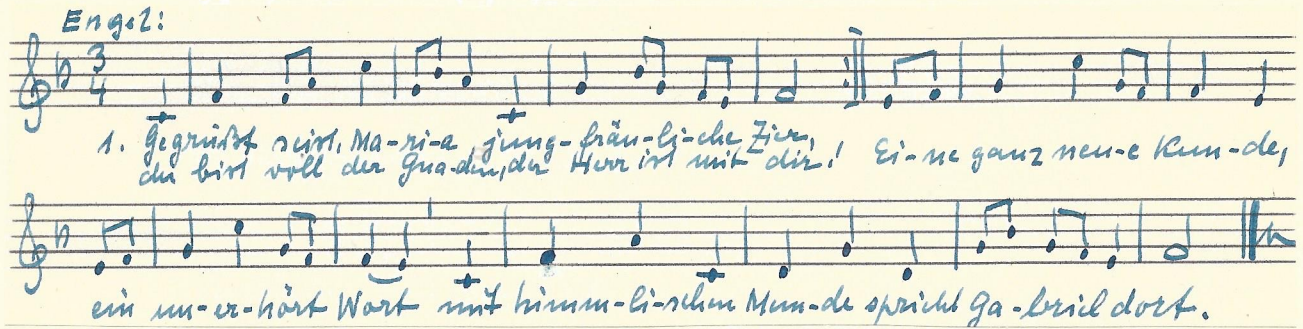 Engel:
3
4
1. Gegrüßt seist, Ma-ri-a, jung-fräu-li-che Zier,
du bist voll der Gna-den, der Herr ist mit dir! Ei-ne ganz neu-e Kun-de,
ein un-er-hört Wort mit himm-li-schen Mun-de spricht Ga-briel dort.